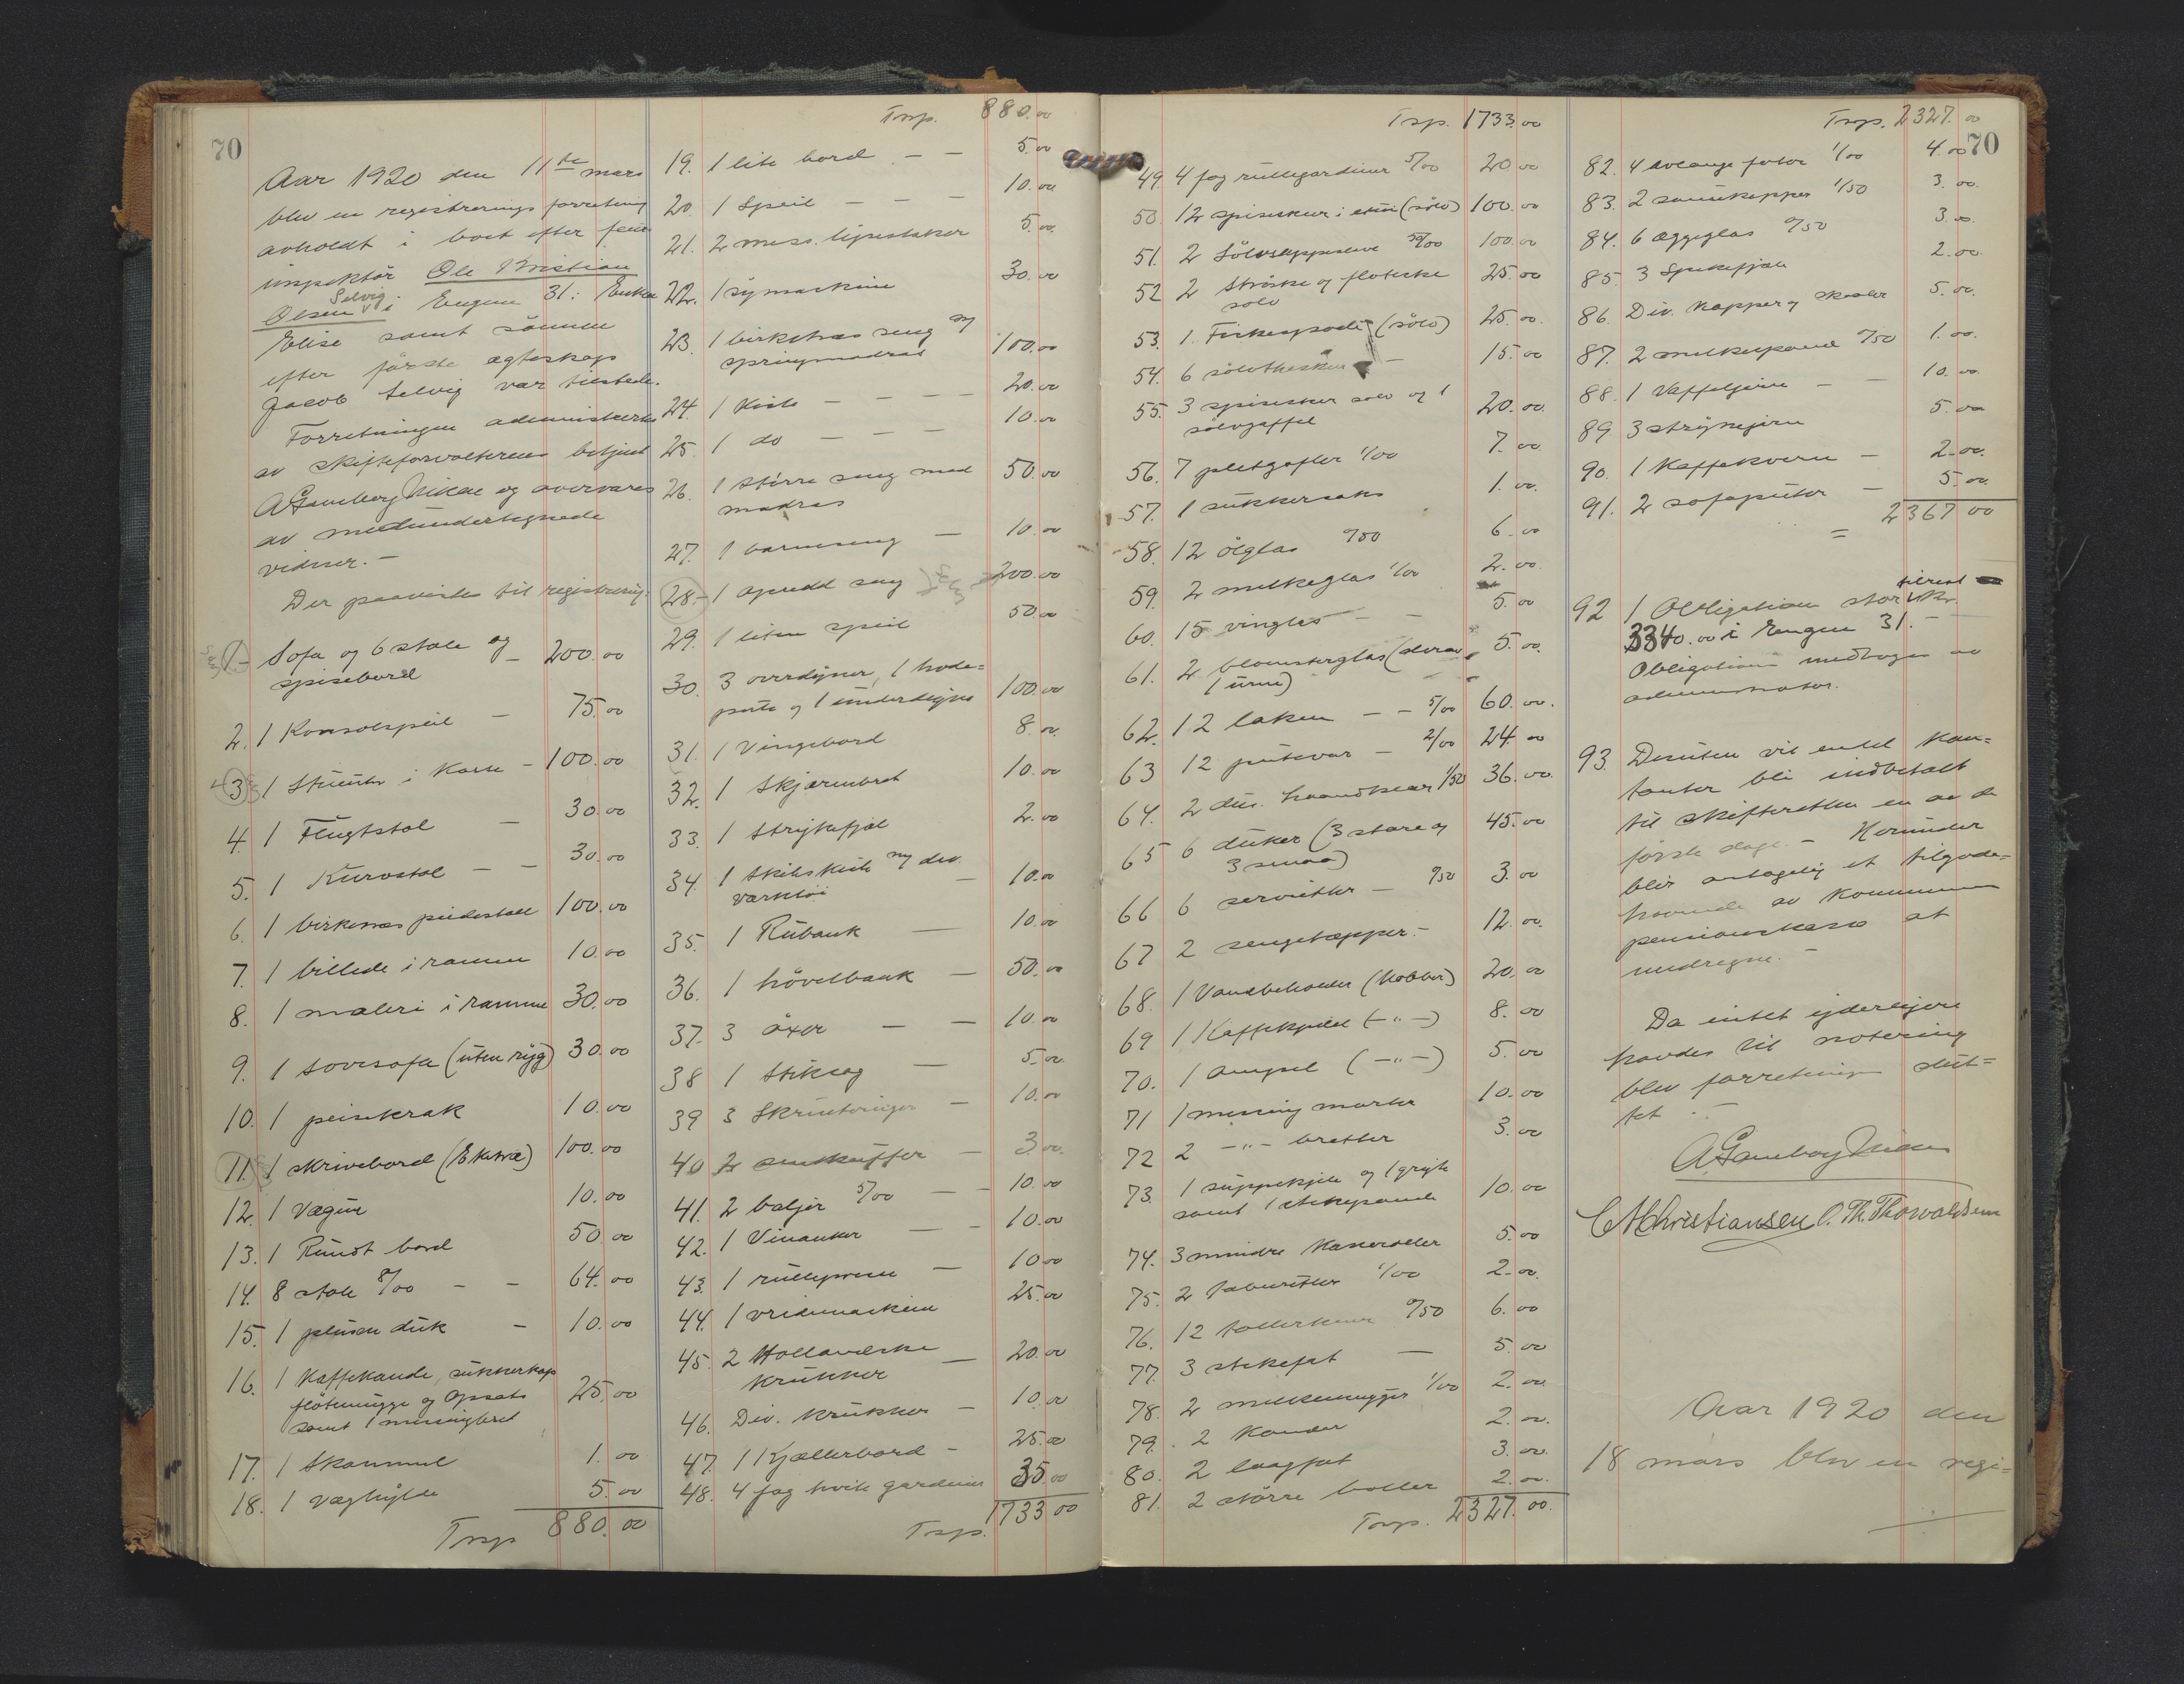 70
Aar 1920 den 11te mars
blev en registrerings forretning
avholdt i boet efter feie
inspektör Ole Kristian
Olsen Selvig i Engene 31: Enken
Elise samt sönnen
efter förste egteskap
Jacob Selvig var tilstede.
Forretningen administrertes
av skifteforvalterens betjent
A Gamborg Nilsen og overvares
av medundertegnede
vidner. –
Der paavistes til registrering:
1. Sofa og 6 stole og
spisebord – 200.00
2. 1 Konsolspeil – 75.00
3. 1 Stueuhr i Kasse – 100.00
4. 1 Flugtstol – 30.00
5. 1 Kurvstol – – 30.00
6. 1 birketræs piedestall 100.00
7. 1 billede i ramme 10.00
8. 1 maleri i ramme 30.00
9. 1 sovesofa (uten ryg) 30.00
10. 1 peisekrak 10.00
11. 1 skrivebord (Eketræ) 100.00
12. 1 Vægur 10.00
13. 1 Rundt bord 50.00
14. 8 stole 8/00 – – 64.00
15. 1 plusen duk – 10.00
16. 1 Kaffekande, sukkerkop
flötemugge og Opsats
samt 1 messingbret 25.00
17. 1 Skammel 1.00
18. 1 væghylde 5.00
Trsp 880.00
Trsp. 880.00
19. 1 lite bord – – 5.00
20. 1 Speil – – – 10.00
21. 2 mess. lysestaker 5.00
22. 1 symaskine 30.00
23. 1 birketræs seng m/
springmadras 100.00
24. 1 Kiste – – – – 20.00
25. 1 do – – – 10.00
26. 1 större seng med
madras 50.00
27. 1 barneseng – 10.00
28. 1 opredd seng 200.00
29. 1 liten speil 50.00
30. 3 overdyner, 1 hode=
pute og 1 underdyne 100.00
31. 1 Vingebord 8.00
32. 1 Skjærmbret 10.00
33. 1 Strykefjæl 2.00
34. 1 Skibskiste m/ div.
værktöi – 10.00
35. 1 Rubank – 10.00
36. 1 hövelbænk – 50.00
37. 3 öxer – – 10.00
38 1 Stiksag – 5.00
39 3 Skrutvinger – 10.00
40 2 – 3.00
41. 2 baljer 5/00 – – 10.00
42. 1 Vinanker – – 10.00
43. 1 rullepresse – 10.00
44. 1 vridemaskine 25.00
45. 2 Hollandske
krukker – 20.00
46. Div. krukker – 10.00
47. 1 Kjøllerbord – 25.00
48. 4 fag hvite gardiner 35.00
Trsp. 1733.00
Trsp. 1733.00
49. 4 fag rullegardiner 5/00 20.00
50. 12 spiseskeer i etui (sölv) 100.00
51. 2 Sölvsuppesleve 50/00 100.00
52 2 Ströske og flöteske
sölv 25.00
53. 1. Fiskespade (sölv) 25.00
54. 6 sölvtheskeer – 15.00
55. 3 spiseskeer sölv og 1
sölvgaffel 20.00
56. 7 pletgafler 1/00 7.00
57. 1 sukkersaks 1.00
58. 12 ölglas 0/50 6.00
59. 2 melkeglas 1/00 2.00
60. 15 vinglas – – 5.00
61. 2 blomsterglas (derav
1 urne) 5.00
62. 12 laken – – 5/00 60.00
63 12 putevar – 2/00 24.00
64. 2 dus. haandklær 1/50 36.00
65 6 duker (3 store og
3 smaa) 45.00
66 6 servietter – 0/50 3.00
67 2 sengetæpper – 12.00
68. 1 Vandbeholder (kobber) 20.00
69 1 Kaffekjedel (–"–) 8.00
70. 1 ampel (–"–) 5.00
71 1 messing morter 10.00
72 2 –"– bretter 3.00
73. 1 suppekjele og 1 gryte
samt 1 stekepande 10.00
74. 3 mindre kasseroller 5.00
75. 2 taburetter 1/00 2.00
76. 12 tallerkener 0/50 6.00
77. 3 stekefat – 5.00
78. 2 melkemugger 1/00 2.00
79. 2 Kander 2.00
80. 2 laagfat 3.00
81. 2 större boller 2.00
Trsp. 2327.00
Trsp. 2327.00
70
82. 4 avlange fater 1/00 4.00
83. 2 sausekopper 1/50 3.00
84. 6 æggeglas 0/50 3.00
85. 3 Spekefjæle 2.00
86. Div. kopper og skaaler 5.00
87. 2 melkespand 0/50 1.00
88. 1 Vaffeljern – – 10.00
89 3 strykejern 5.00
90. 1 Kaffekvern – 2.00
91. 2 sofaputer – 5.00
= 2367 00
92 1 Obligation stor tilrest kr.
3340.00 i Engene 31. –
Obligationen medtoges av
administrator.
93. Desuten vil endel kon=
tanter bli indbetalt
til skifteretten en av de
förste dage. – Herunder
blir antagelig et tilgode=
havende av kommunens
pensionskasse at
medregne. –
Da intet yderligere
havdes til notering
blev forretningen slut=
tet. –
A. Gamborg Nilsen
C A Christiansen O. Th. Thorvaldsen
Aar 1920 den
18 mars blev en regi=